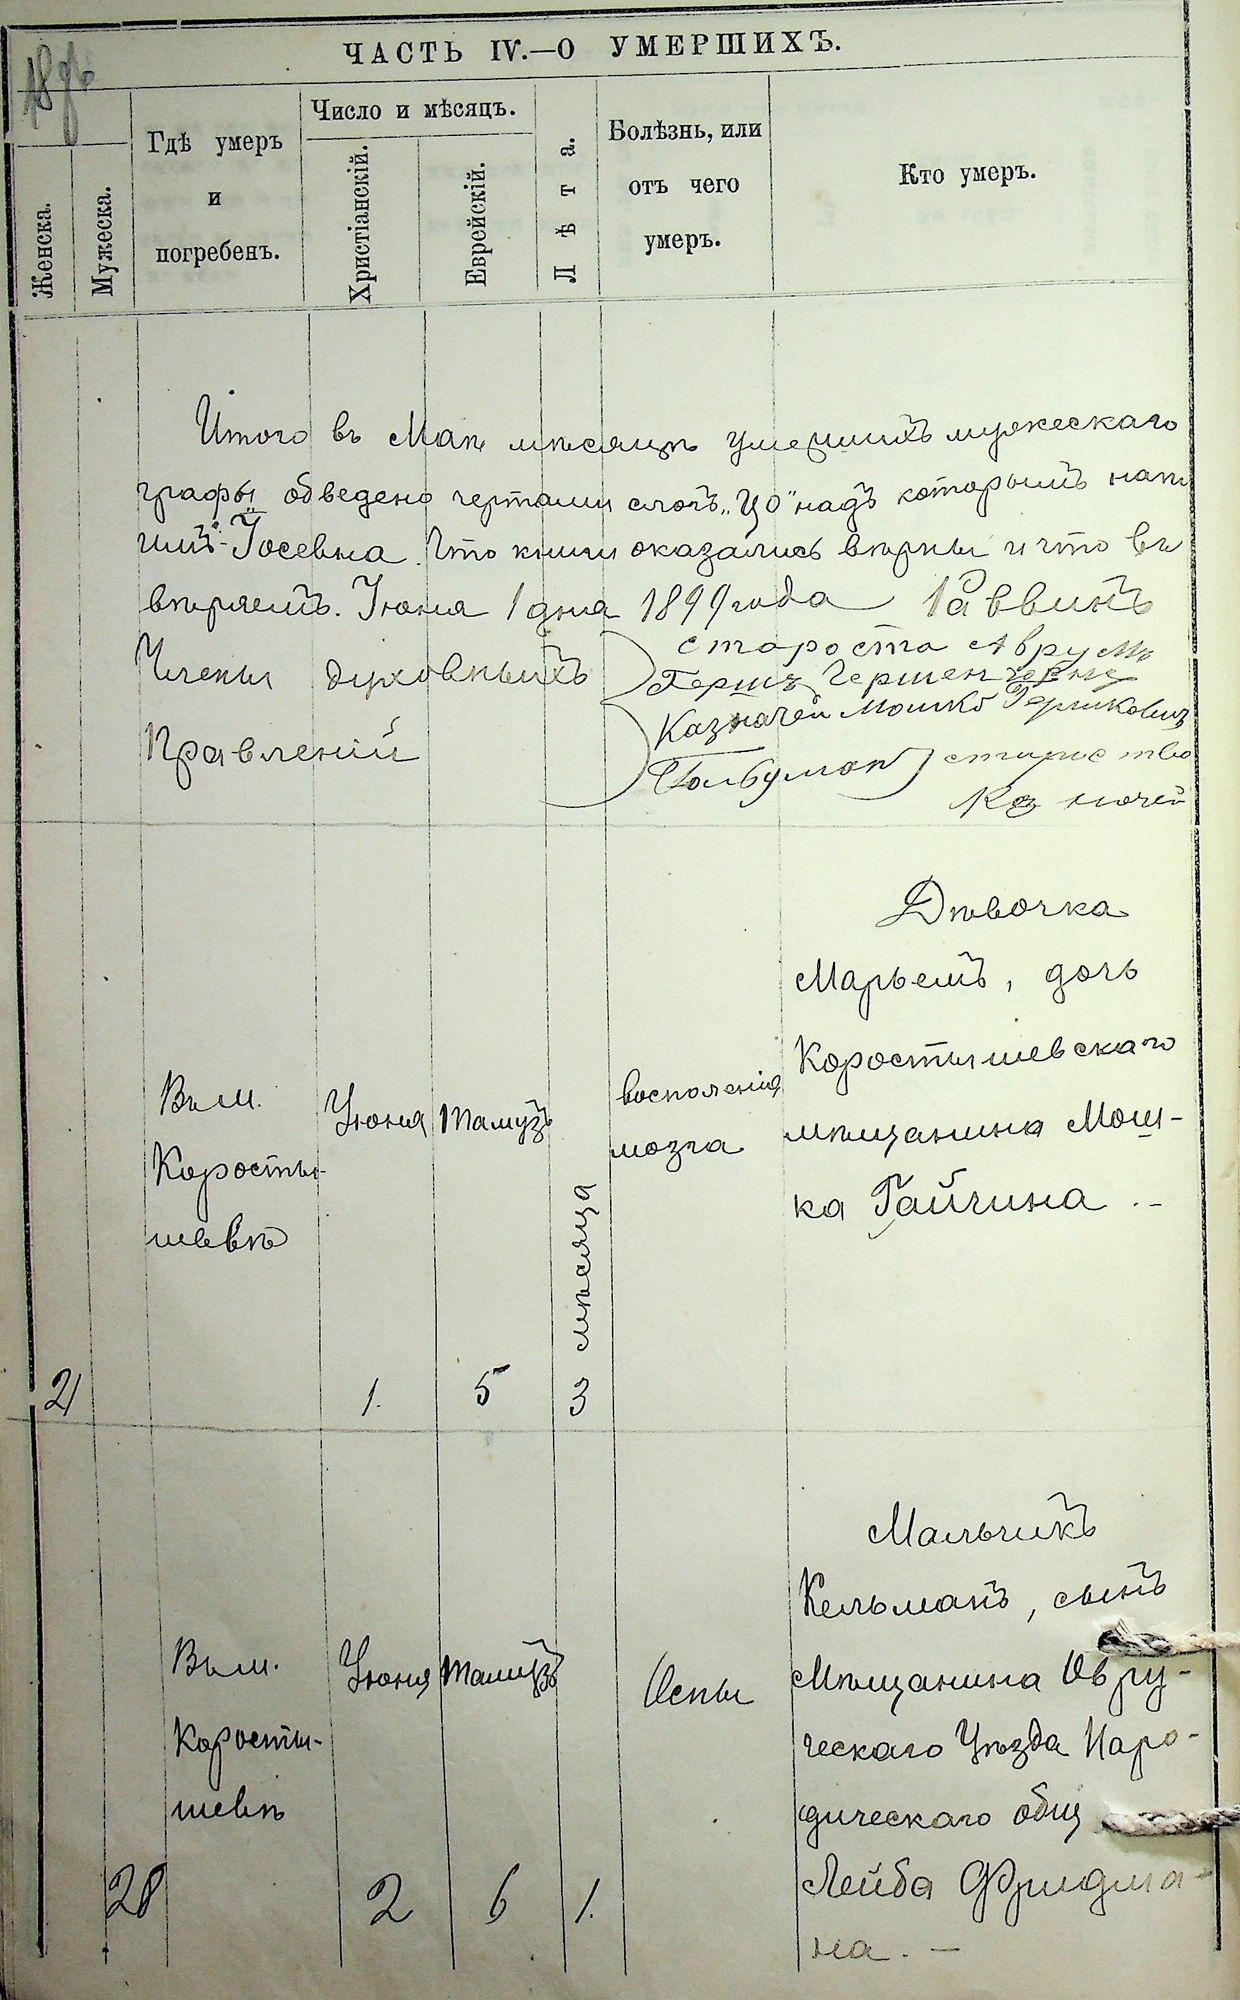 ЧАСТЬ IV.—О УМЕРШИХЪ.
Женска.
Мужеска.
Гдѣ умеръ
и
погребенъ.
Число и мѣсяцъ.
Христіанскій.
Еврейскій.
Лѣта.
Болѣзнь, или
отъ чего
умеръ.
Кто умеръ.
Итого въ Маѣ мѣсяцѣ умершихъ мужескаго
графы обведено чертами слогъ „Цо" надъ которымъ напи
Іосевна. Что книги оказались вѣрны и что въ
вѣряемъ. Іюня 1 дня 1899 года Раввинъ
Члены духовныхъ
Правленій
староста Аврумъ
Гершъ
Казначей Мошко Гершковичъ
Казначей
21
Въ м.
Коросты-
шевѣ
Іюня
1.
Тамузъ
5
3 мѣсяца
воспаленія
мозга
Дѣвочка
Марьемъ, дочь
Коростышевскаго
мѣщанина Мош-
ка Гайчина
28
Въ м.
Коросты-
шевѣ
Іюня
2
Тамузъ
6
1.
Оспы
Мальчикъ
Кельманъ, сынъ
Мѣщанина Овру-
ческаго Уѣзда Наро-
дическаго общ
Лейба Фридма-
на. —